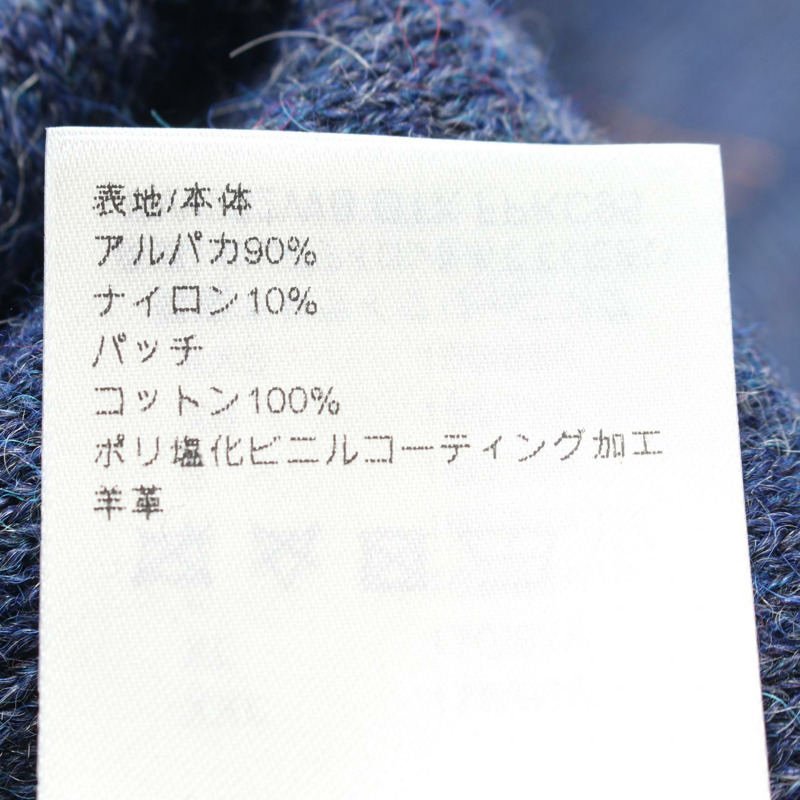 表地/本体
アルパカ90%
ナイロン10%
パッチ
コットン100%
ポリ塩化ビニルコーティング加工
羊革